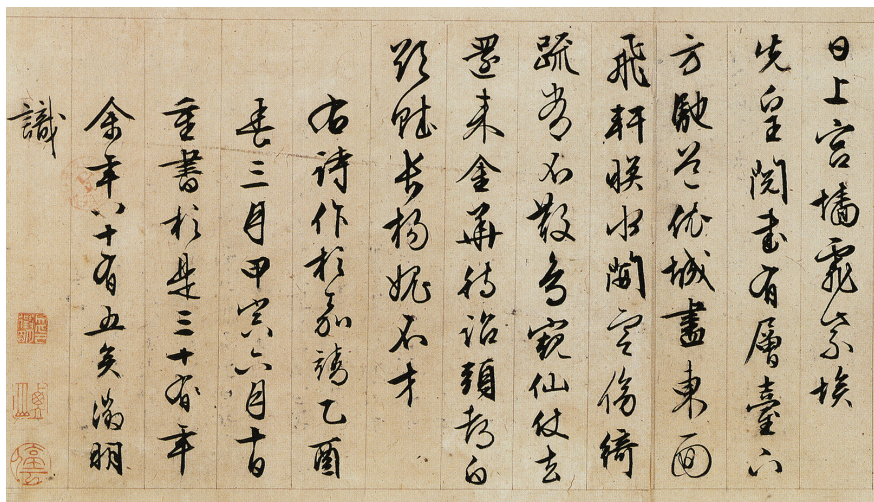 日上宮墻霏紫埃
先皇閱武有層臺下
方馳道依城盡東面
飛軒映水開雲傍綺
疏常不散鳥窺仙仗去
還來金華待詔頭都白
欲賦長楊媿不才
右詩作於嘉靖乙酉
春三月甲寅六月十日
重書於是三十有年
余年八十有五矣徵明
識